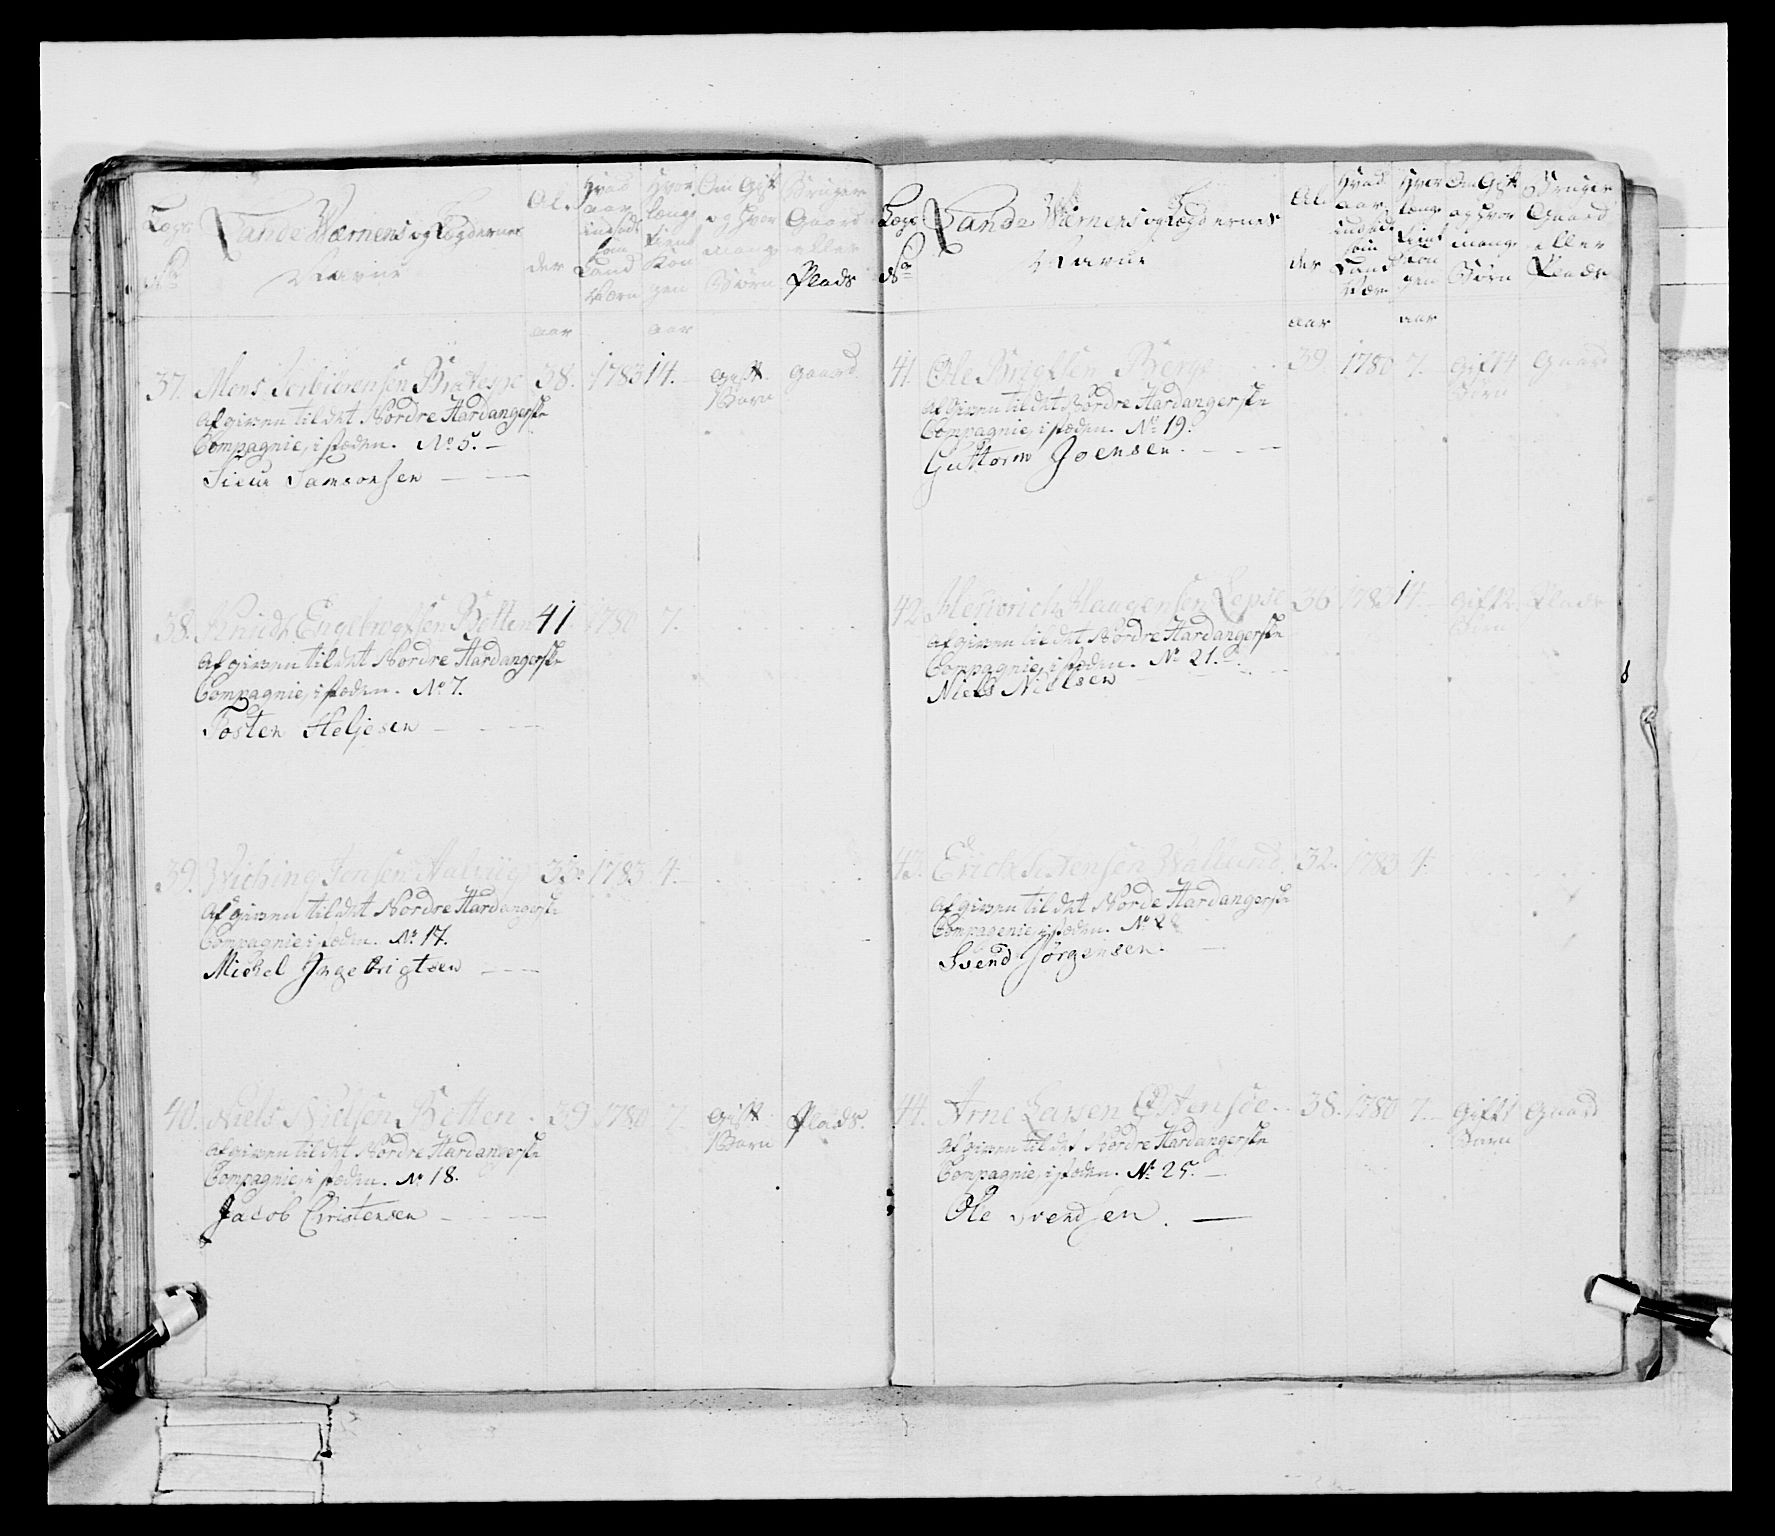 Lægs No
Lande Wærnens og Lægdernes Navne
Alder aar
Hvad aar indsat som Land Værn
Hvor længe tient Kongen aar
Om Gift og hvor mange Børn
Bruger Gaard eller Plads
37. Mons Torbiörensen 38. 1783 14. Gift Gaard
Børn
Afgiven til det Nordre Hardangerske
Compagnie, i stæden. No 5. —
Siur Samsonsen — —
38. Knudt Engebregtsen Botten 41 1780 7.
Afgiven til det Nordre Hardangerske
Compagnie, i stæden. No 7.
Tosten Heljesen — —
39. Wiching Jensen Aalvig 33. 1783. 4.
Afgiven til det Nordre Hardangerske
Compagnie i stæden. No 17.
Michel Ingebrigtsen — —
40. Niels Nielsen Botten. 39 1780 7. Gift Plads.
Børn
Afgiven til det Nordre Hardangerske
Compagnie, i stæden. No 18.
Jacob Christensen — —
Lægs No
Lande Wærnens og Lægdernes Navne
Alder aar
Hvad aar indsat som Land Værn
Hvor længe tient Kongen aar
Om Gift og hvor mange Børn
Bruger Gaard eller Plads
41. Ole Brigtsen Berge 39. 1780 7. Gift 4 Gaard
Börn
Afgiven til det Nordre Hardangerske
Compagnie, i stæden. No 19.
Guttorm Joensen. — —
42. Haugensen Lepsö 36 1783 14. Gift 2. Plads
Börn
Afgiven til det Nordre Hardangerske
Compagnie, i stæden. No 21. —
Niels Nielsen — —
43. Erich 32. 1783 4.
Afgiven til det Norde Hardangerske
Compagenie, i stæden. No 2
Svend Jörgensen. —
44. Arne Larsen Östensöe. 38. 1780 7. Gift 1 Gaard
Barn
Afgiven til det Nordre Hardangerske
Compagnie, i stæden. No 25. —
Ole Svendsen. —